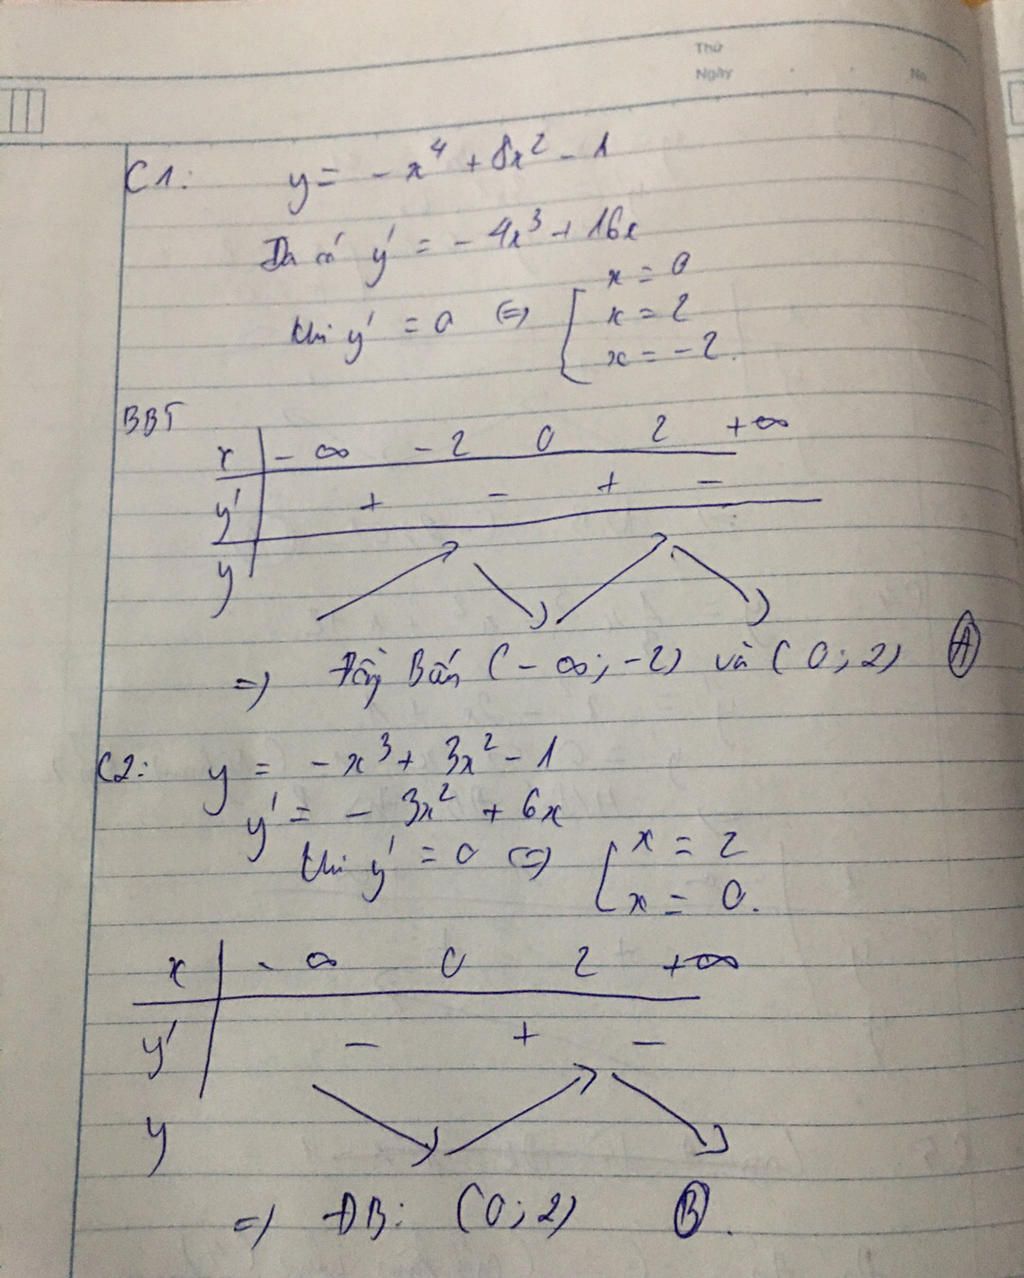 Thứ
Ngày . . No
C1: y = - x⁴ + 8x² - 1
Ta có y' = - 4x³ + 16x
khi y' = 0 (=) [ x = 0
x = 2
x = - 2.
BBT
x - ∞ - 2 0 2 + ∞
y' + - + -
y
=) Đồng Biến (- ∞; -2) và (0; 2) (A)
C2: y = - x³ + 3x² - 1
y' = - 3x² + 6x
khi y' = 0 (=) [ x = 2
x = 0.
x - ∞ 0 2 +∞
y' - + -
y
=) ĐB: (0; 2) (B).